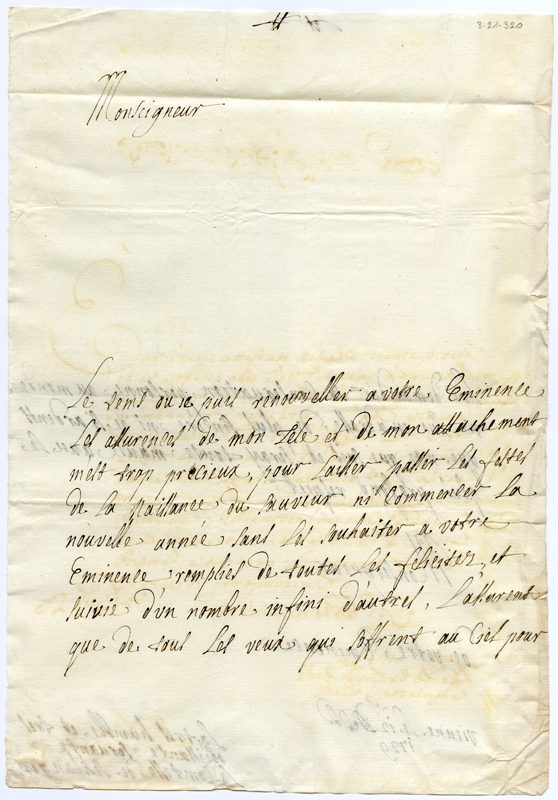 3-21-320
Monseigneur
Le tems ou ie puis renouveller a votre Eminence
Les assurences de mon Zele et de mon attachement
mest trop précieux, pour laisser passer Les festes
de La Naissance du Sauveur ni Commencer La
nouvelle année sans Les souhaiter a votre
Eminence remplies de toutes Les felicitez, et
suivie d'un nombre infini d'autres, L'assurent
que de tous Les veux qui soffrent au Ciel pour